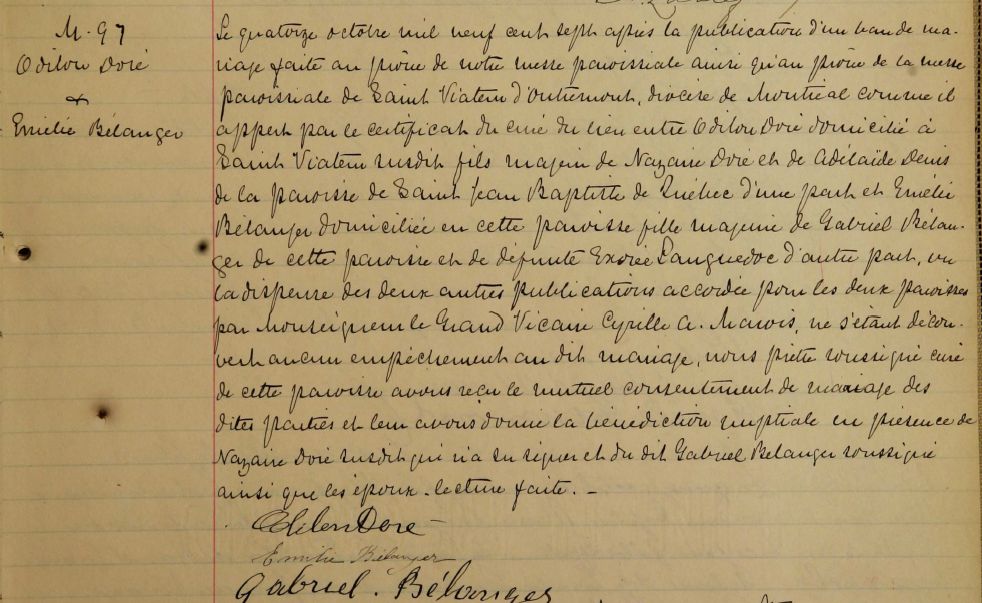 M. 97
Odilon Doré
&
Emélie Bélanger
Le quatorze octobre mil neuf cent sept après la publication d'un ban de ma-
riage faite au prône de notre messe paroissiale ainsi qu'au prône de la messe
paroissiale de Saint Viateur d'Outremont, diocèse de Montréal comme il
appert par le certificat du curé du lieu entre Odilon Doré domicilié à
Saint Viateur susdit fils majeur de Nazaire Doré et de Adélaïde Denis
de la paroisse de Saint Jean Baptiste de Québec d'une part et Emélie
Bélanger domiciliée en cette paroisse fille majeure de Gabriel Bélan-
ger de cette paroisse et de défunte Exorée Languedoc d'autre part, vu
la dispense des deux autres publications accordée pour les deux paroisses
par Monseigneur le Grand Vicaire Cyrille A. Marois, ne s'étant décou-
vert aucun empêchement au dit mariage, nous prêtre soussigné curé
de cette paroisse avons reçu le mutuel consentement de mariage des
dites parties et leur avons donné la bénédiction nuptiale en présence de
Nazaire Doré susdit qui n'a su signer et du dit Gabriel Bélanger soussigné
ainsi que les époux. lecture faite. -
Odilon Doré
Emilie Bélanger
Gabriel. Bélanger